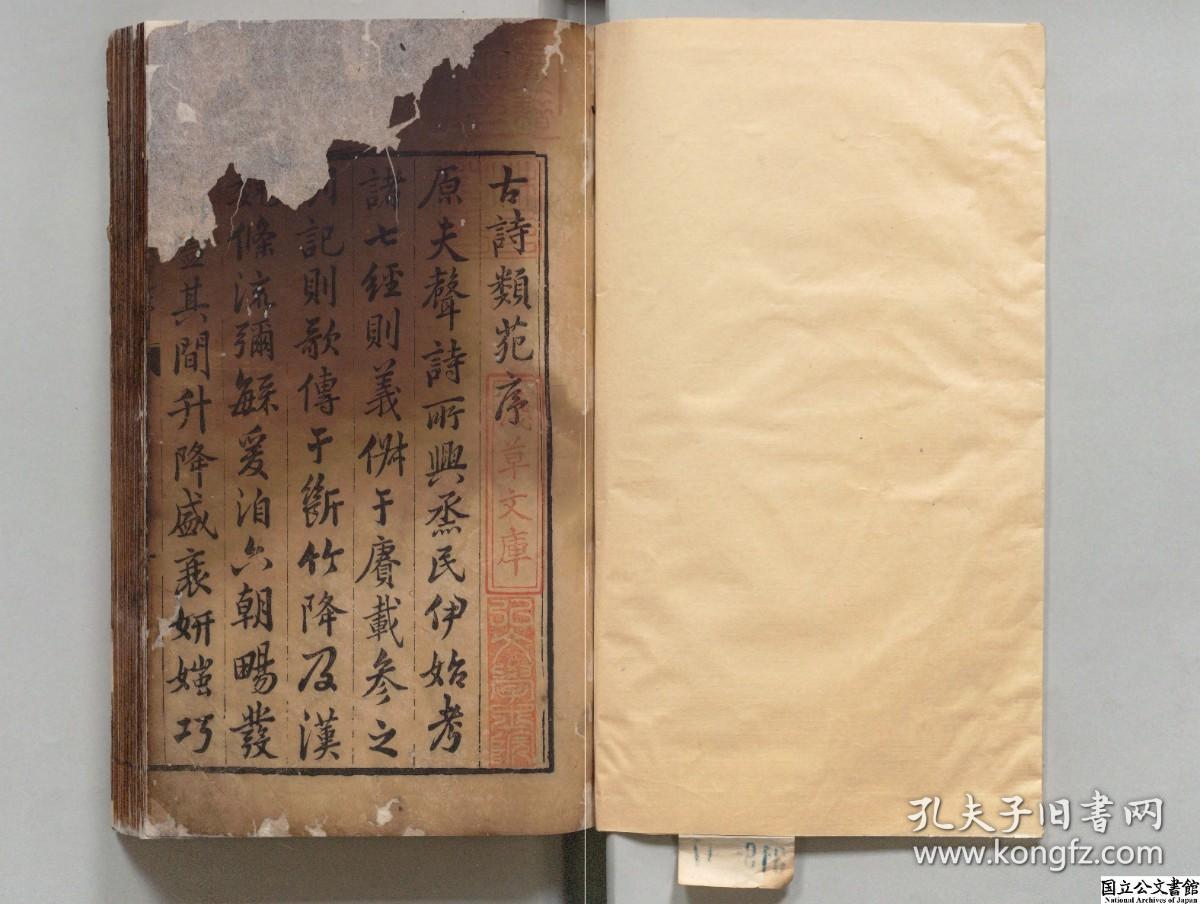 古詩類苑序
原夫聲詩所興烝民伊始考
諸七經則義倂于賡載參之
記則歌傳于斷竹降及漢
條流彌繇爰洎六朝暢發
其間升降盛衰妍媸巧
淺草文庫
孔夫子旧书网
www.kongfz.com
国立公文書館
National Archives of Japan